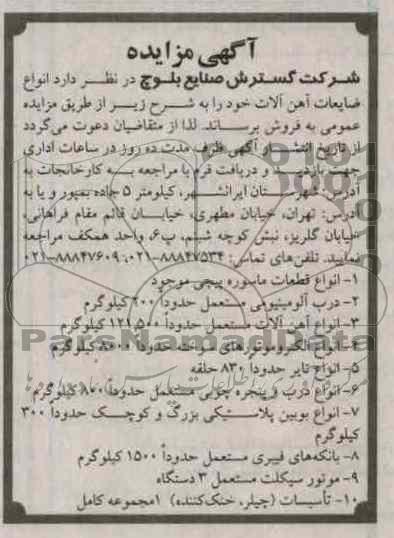 آگهی مزایده
شرکت گسترش صنایع بلوچ در نظر دارد انواع
ضایعات آهن آلات خود را به شرح زیر از طریق مزایده
عمومی به فروش برساند. لذا از متقاضیان دعوت می‌گردد
از تاریخ انتشار آگهی ظرف مدت ده روز در ساعات اداری
جهت بازدید و دریافت فرم با مراجعه به کارخانجات به
آدرس: شهرستان ایرانشهر، کیلومتر ۵ جاده بمپور و یا به
آدرس: تهران، خیابان مطهری، خیابان قائم مقام فراهانی،
خیابان گلریز، نبش کوچه شبنم، پ۶، واحد همکف مراجعه
نمایید. تلفن‌های تماس: ۸۸۸۴۷۵۳۴-۰۲۱، ۸۸۸۴۷۶۰۹-۰۲۱
۱- انواع قطعات ماسوره پیچی موجود
۲- درب آلومینیومی مستعمل حدوداً ۲۰۰ کیلوگرم
۳- انواع آهن آلات مستعمل حدوداً ۱۲۱,۵۰۰ کیلوگرم
انواع الکتروموتورهای سوخته حدوداً ۸۰۰۰ کیلوگرم
۵- انواع تایر حدوداً ۸۳۰ حلقه
۶- انواع درب و پنجره چوبی مستعمل حدوداً ۸۰۰ کیلوگرم
۷- انواع بوبین پلاستیکی بزرگ و کوچک حدوداً ۳۰۰
کیلوگرم
۸- بانکه‌های فیبری مستعمل حدوداً ۱۵۰۰ کیلوگرم
۹- موتور سیکلت مستعمل ۳ دستگاه
۱۰- تأسیسات (چیلر، خنک‌کننده) ۱مجموعه کامل
ParsNamadData